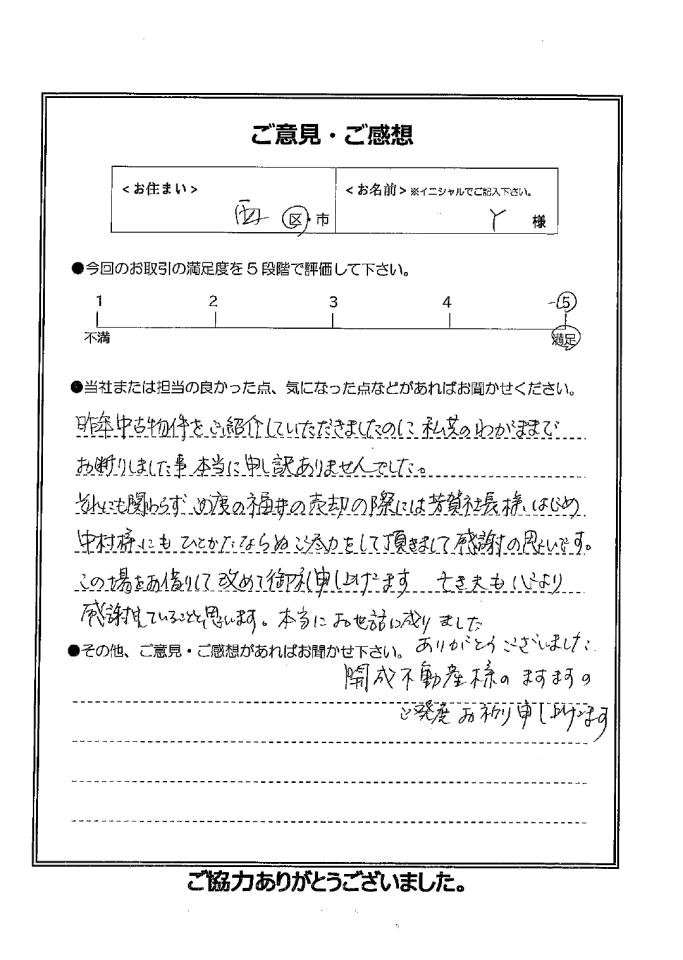 ご意見・ご感想
<お住まい>
西 区・市
<お名前>※イニシャルでご記入下さい。
Y 様
●今回のお取引の満足度を5段階で評価して下さい。
1 2 3 4 5
不満 満足
●当社または担当の良かった点、気になった点などがあればお聞かせください。
昨年中古物件をご紹介していただきましたのに私共のわがままで
お断りしました事本当に申し訳ありませんでした。
それにも関わらず 此度の福井の売却の際には芳賀社長様はじめ
中村様にもひとかたならぬご尽力をして頂きまして感謝の思いです。
この場をお借りして改めて御礼申し上げます 夫も心より
感謝していることと思います。本当にお世話に成りました
ありがとうございました
●その他、ご意見・ご感想があればお聞かせ下さい。
開成不動産様のますますの
ご発展お祈り申し上げます
ご協力ありがとうございました。